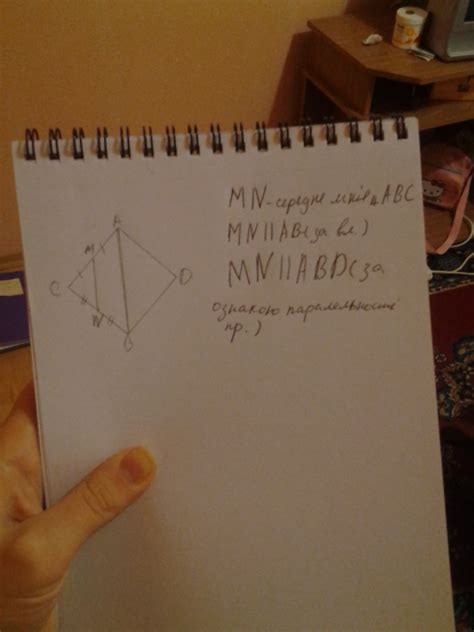 MN-середне лінія △ABC
MN||AB(за вл.)
MN||ABD(за
ознакою паралельності
пр.)
A
M
C
D
N
B